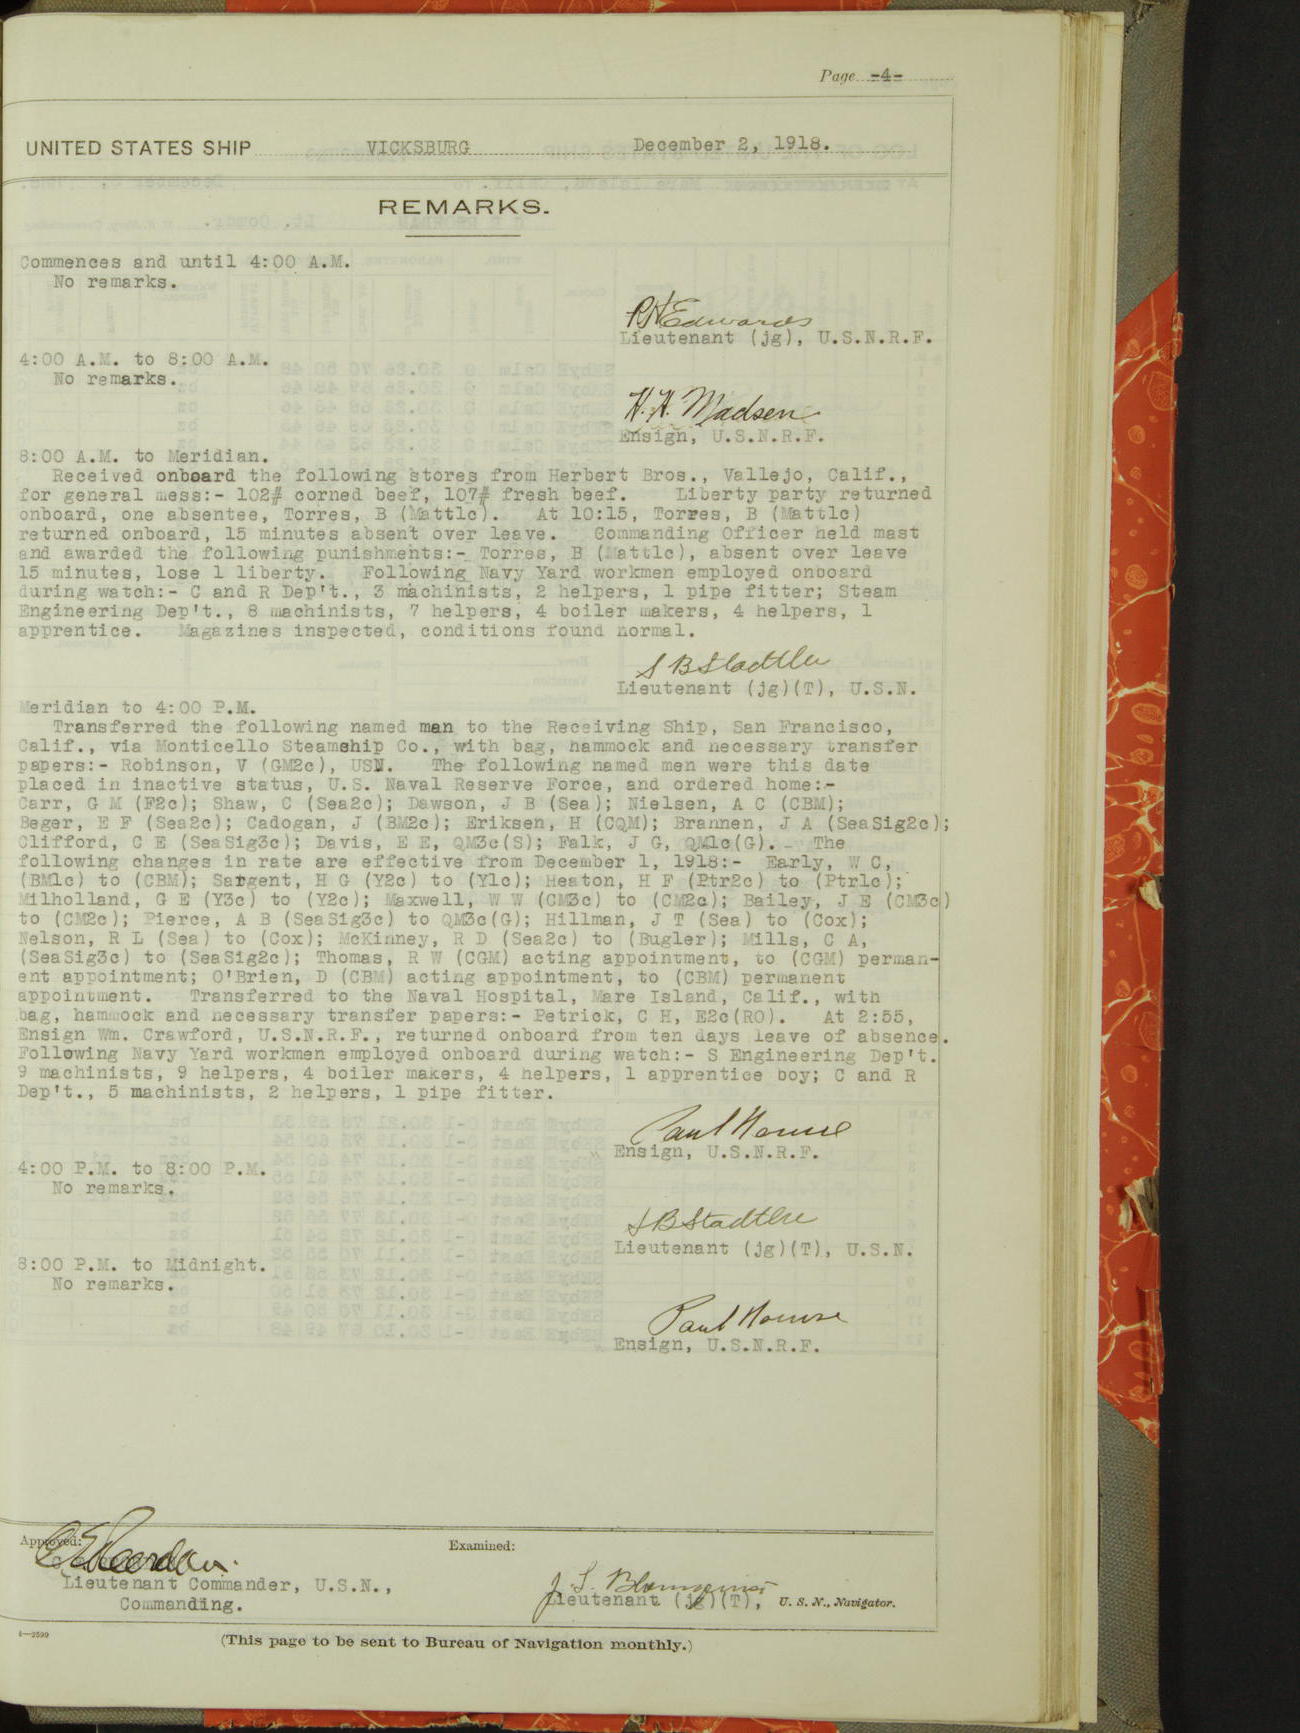 Page -4-
UNITED STATES SHIP VICKSBURG December 2, 1918.
REMARKS.
Commences and until 4:00 A.M.
No remarks.
P H Edwards
Lieutenant (jg), U.S.N.R.F.
4:00 A.M. to 8:00 A.M.
No remarks.
H. H. Madsen
Ensign, U.S.N.R.F.
8:00 A.M. to Meridian.
Received onboard the following stores from Herbert Bros., Vallejo, Calif.,
for general mess:- 102# corned beef, 107# fresh beef. Liberty party returned
onboard, one absentee, Torres, B (Matt1c). At 10:15, Torres, B (Matt1c)
returned onboard, 15 minutes absent over leave. Commanding Officer held mast
and awarded the following punishments:- Torres, B (Matt1c), absent over leave
15 minutes, lose 1 liberty. Following Navy Yard workmen employed onboard
during watch:- C and R Dep't., 3 machinists, 2 helpers, 1 pipe fitter; Steam
Engineering Dep't., 8 machinists, 7 helpers, 4 boiler makers, 4 helpers, 1
apprentice. Magazines inspected, conditions found normal.
S B Stadtler
Lieutenant (jg)(T), U.S.N.
Meridian to 4:00 P.M.
Transferred the following named man to the Receiving Ship, San Francisco,
Calif., via Monticello Steamship Co., with bag, hammock and necessary transfer
papers:- Robinson, V (GM2c), USN. The following named men were this date
placed in inactive status, U.S. Naval Reserve Force, and ordered home:-
Carr, G M (F2c); Shaw, C (Sea2c); Dawson, J B (Sea); Nielsen, A C (CBM);
Beger, E F (Sea2c); Cadogan, J (BM2c); Eriksen, H (CQM); Brannen, J A (SeaSig2c);
Clifford, C E (SeaSig3c); Davis, E E, QM3c(S); Falk, J G, QM1c(G). The
following changes in rate are effective from December 1, 1918:- Early, W C,
(BM1c) to (CBM); Sargent, H G (Y2c) to (Y1c); Heaton, H F (Ptr2c) to (Ptr1c);
Milholland, G E (Y3c) to (Y2c); Maxwell, W W (CM3c) to (CM2c); Bailey, J E (CM3c)
to (CM2c); Pierce, A B (SeaSig3c) to QM3c(G); Hillman, J T (Sea) to (Cox);
Nelson, R L (Sea) to (Cox); McKinney, R D (Sea2c) to (Bugler); Mills, C A,
(SeaSig3c) to (SeaSig2c); Thomas, R W (CGM) acting appointment, to (CGM) perman-
ent appointment; O'Brien, D (CBM) acting appointment, to (CBM) permanent
appointment. Transferred to the Naval Hospital, Mare Island, Calif., with
bag, hammock and necessary transfer papers:- Petrick, C H, E2c(RO). At 2:55,
Ensign Wm. Crawford, U.S.N.R.F., returned onboard from ten days leave of absence.
Following Navy Yard workmen employed onboard during watch:- S Engineering Dep't.
9 machinists, 9 helpers, 4 boiler makers, 4 helpers, 1 apprentice boy; C and R
Dep't., 5 machinists, 2 helpers, 1 pipe fitter.
Paul
Ensign, U.S.N.R.F.
4:00 P.M. to 8:00 P.M.
No remarks.
S B Stadtler
Lieutenant (jg)(T), U.S.N.
8:00 P.M. to Midnight.
No remarks.
Paul
Ensign, U.S.N.R.F.
Approved: Examined:
Lieutenant Commander, U.S.N.,
Commanding.
J. S.
Lieutenant (jg)(T), U. S. N., Navigator.
(This page to be sent to Bureau of Navigation monthly.)